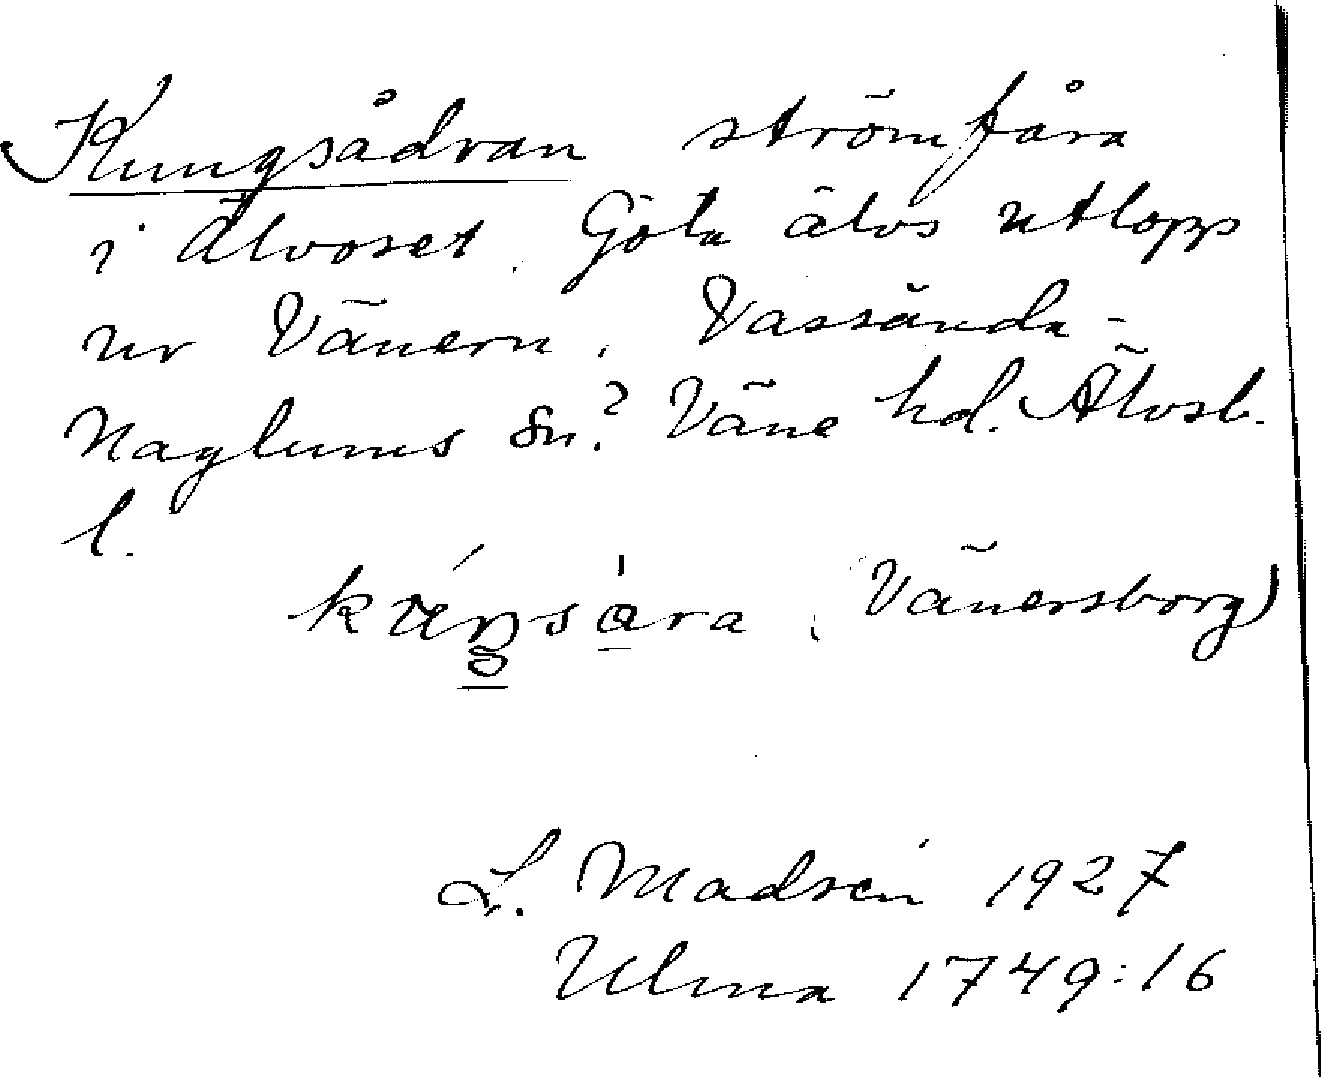 Kungsådran strömfåra
i Älvoset. Göta älvs utlopp
ur Vänern. Vassända-
Naglums sn? Väne hd. Älvsb.
l.
(Vänersborg)
L. Madsén 1927
Ulma 1749:16